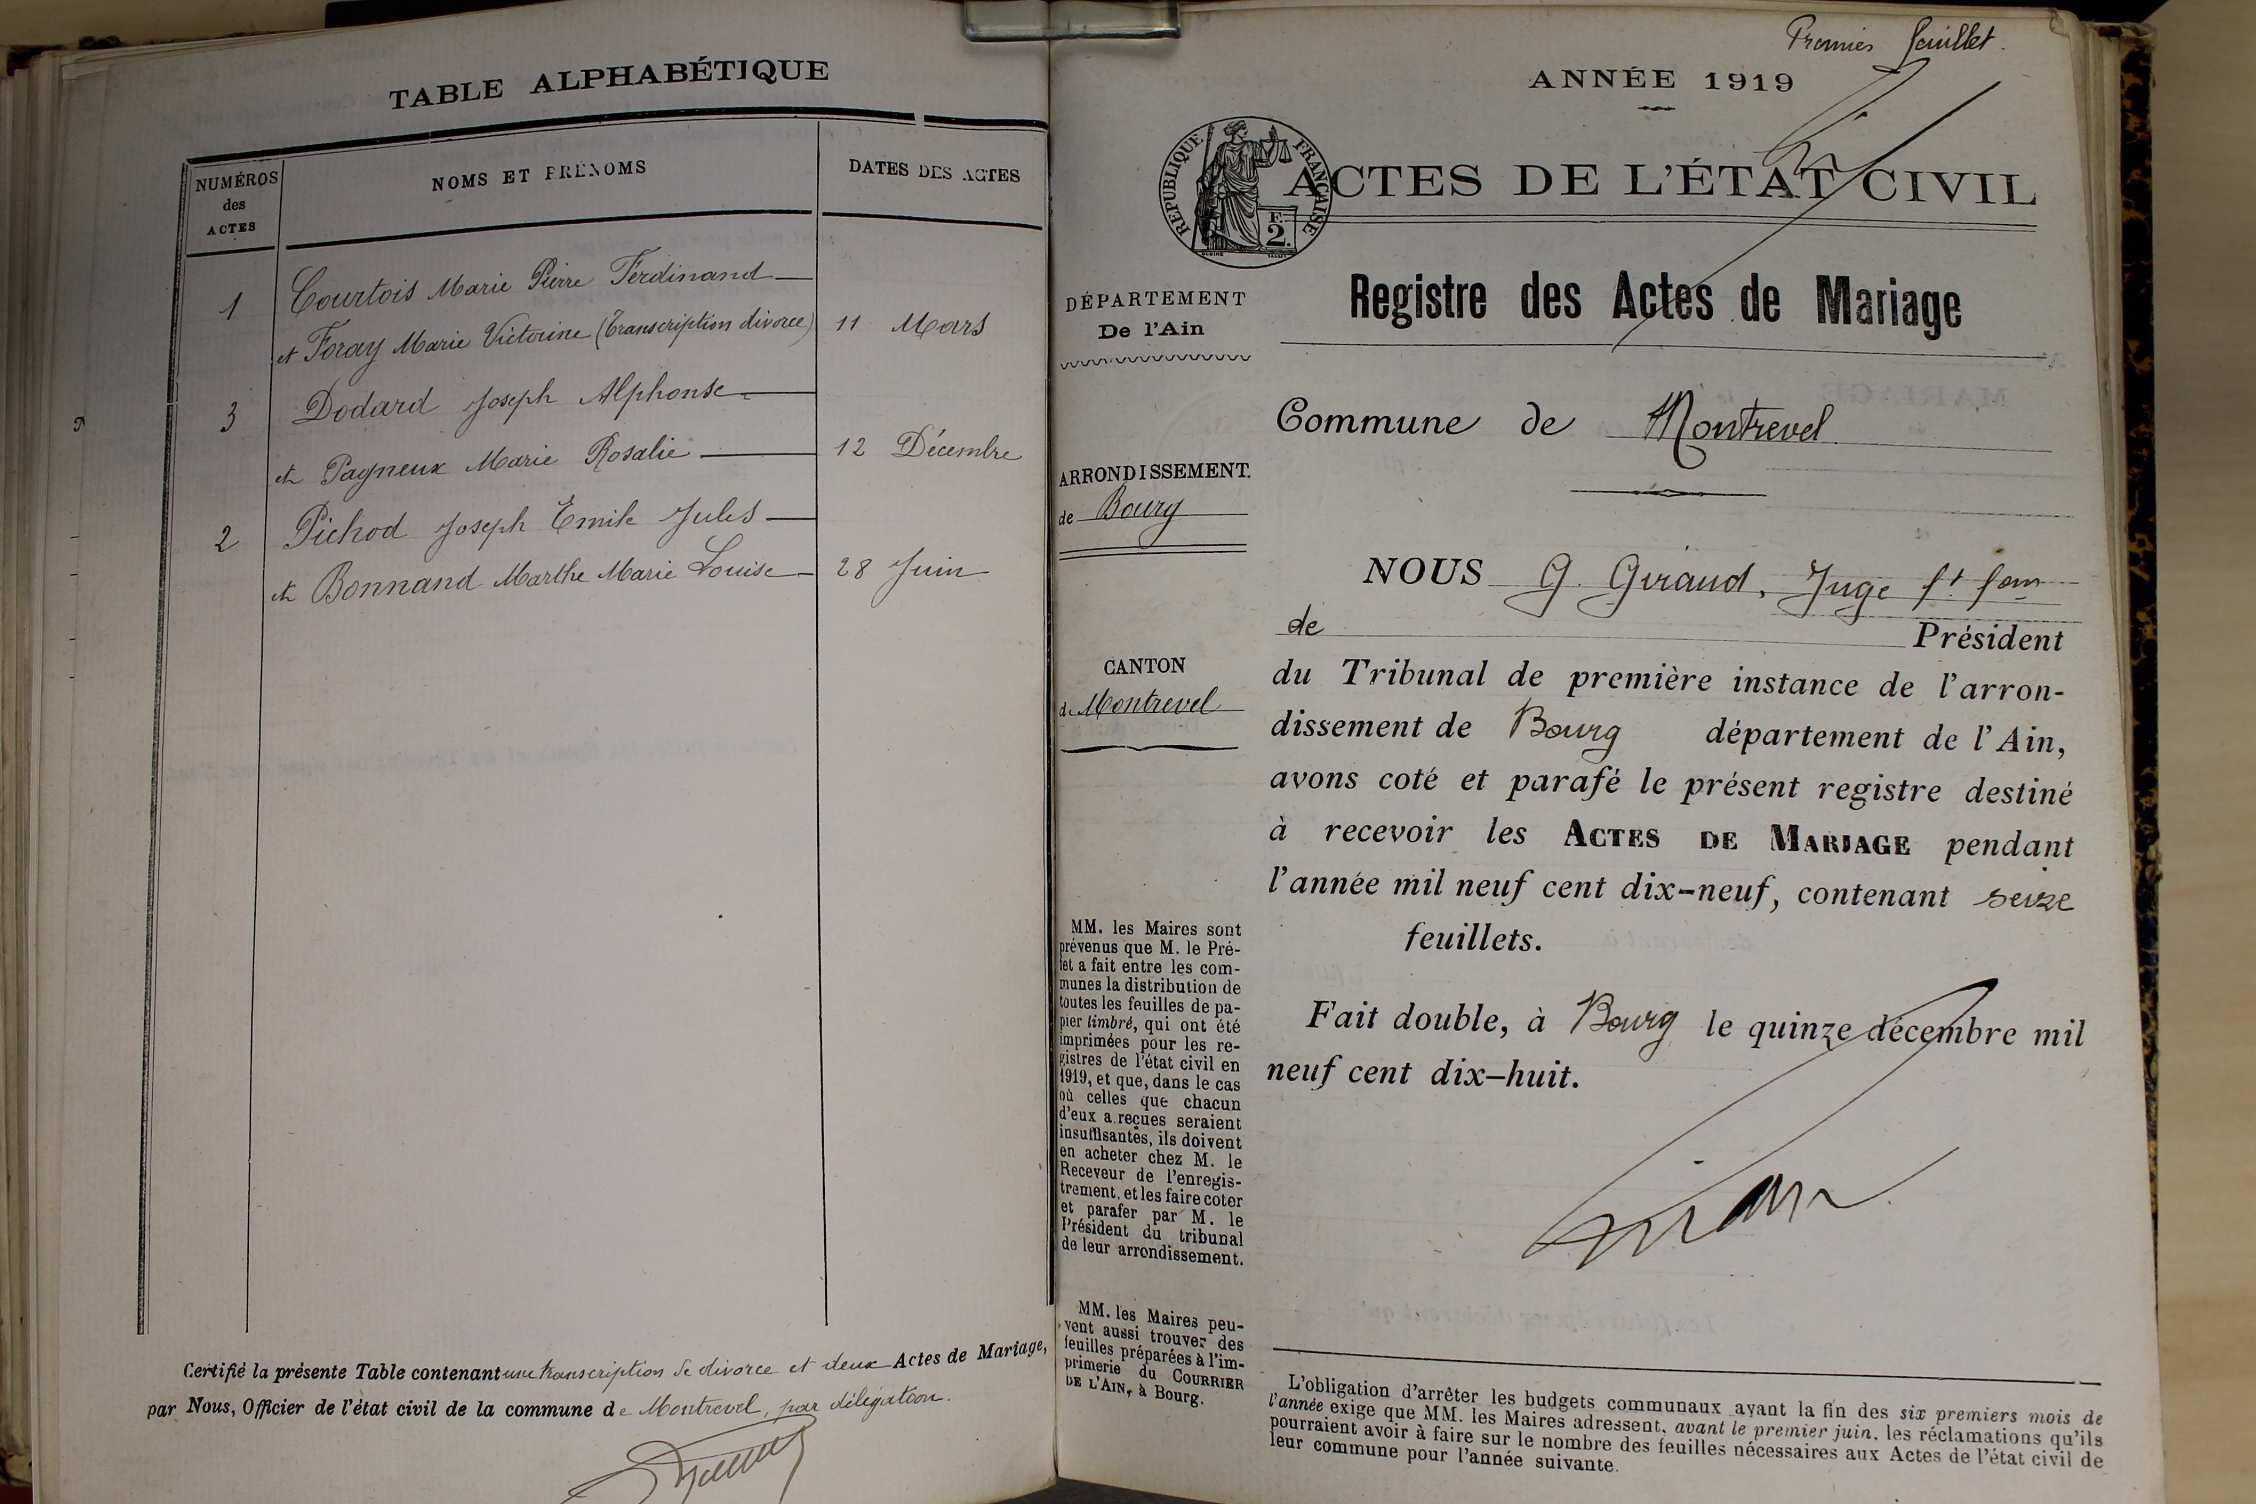 TABLE ALPHABÉTIQUE
NUMÉROS
des
ACTES
NOMS ET PRÉNOMS
DATES DES ACTES
1 Courtois Marie Pierre Ferdinand
et Foray Marie Victorine (Transcription divorce) 11 Mars
3 Dodard Joseph Alphonse
et Pagneux Marie Rosalie 12 Décembre
2 Pichod Joseph Emile Jules
et Bonnand Marthe Marie Louise 28 Juin
Certifié la présente Table contenant une transcription de divorce et deux Actes de Mariage,
par Nous, Officier de l'état civil de la commune de Montrevel, par délégation.
Premier feuillet.
ANNÉE 1919
RÉPUBLIQUE FRANÇAISE
F.
2.
ACTES DE L'ÉTAT CIVIL
Registre des Actes de Mariage
DÉPARTEMENT
De l'Ain
Commune de Montrevel
ARRONDISSEMENT.
de Bourg
CANTON
de Montrevel
NOUS G. Giraud, Juge
de Président
du Tribunal de première instance de l'arron-
dissement de Bourg département de l'Ain,
avons coté et parafé le présent registre destiné
à recevoir les ACTES DE MARIAGE pendant
l'année mil neuf cent dix-neuf, contenant seize
feuillets.
Fait double, à Bourg le quinze décembre mil
neuf cent dix-huit.
MM. les Maires sont
prévenus que M. le Pré-
fet a fait entre les com-
munes la distribution de
toutes les feuilles de pa-
pier timbré, qui ont été
imprimées pour les re-
gistres de l'état civil en
1919, et que, dans le cas
où celles que chacun
d'eux a reçues seraient
insuffisantes, ils doivent
en acheter chez M. le
Receveur de l'enregis-
trement, et les faire coter
et parafer par M. le
Président du tribunal
de leur arrondissement.
MM. les Maires peu-
vent aussi trouver des
feuilles préparées à l'im-
primerie du COURRIER
DE L'AIN, à Bourg.
L'obligation d'arrêter les budgets communaux avant la fin des six premiers mois de
l'année exige que MM. les Maires adressent, avant le premier juin, les réclamations qu'ils
pourraient avoir à faire sur le nombre des feuilles nécessaires aux Actes de l'état civil de
leur commune pour l'année suivante.